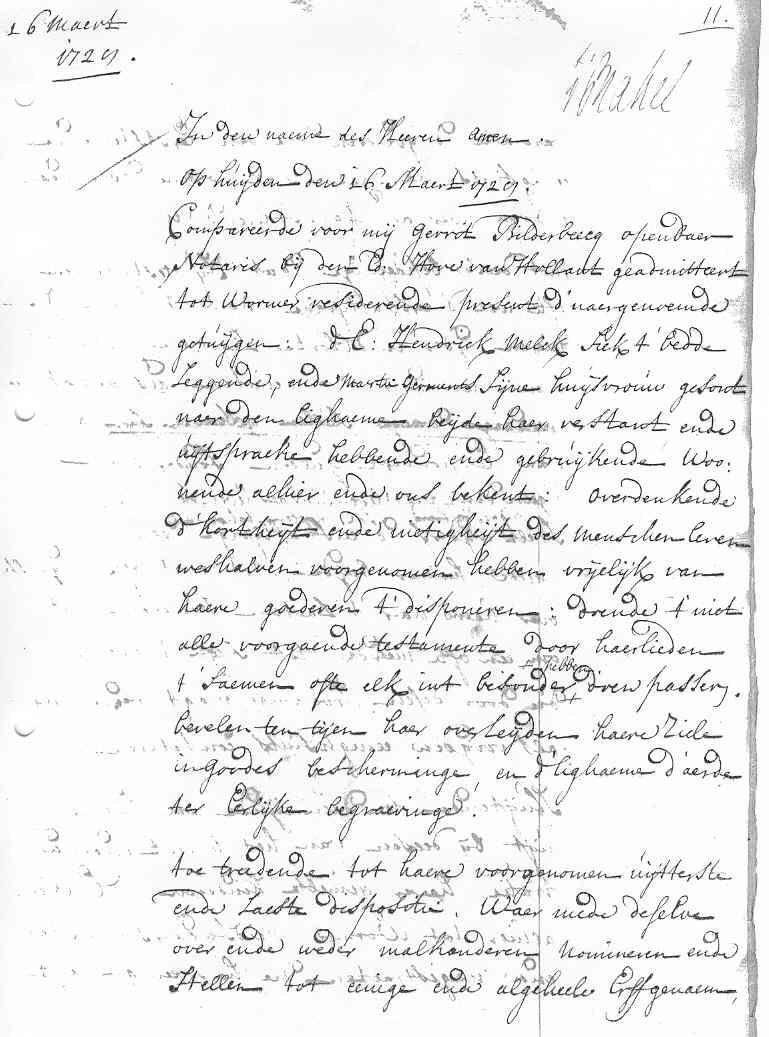 16 Maert
1729.
11.
In den naeme des Heeren amen.
Op húijden den 16 Maert 1729.
Compareerde voor mij Gerrit Bilderbeecq openbaer
Notaris bij den Ed: Hove van Hollant geadmitteert
tot Wormer resideerende present d'naergenoemde
getúijgen: d'E: Hendrick Melck Siek t' bedde
Leggende, ende Martie Germents Sijne huijsvrouw gesont
naer den lighaeme beijde haer verstant ende
úijtspraeke hebbende ende gebrúijkende Woo:
nende alhier ende ons bekent: overdenkende
d'kortheijt ende nietigheijt des menschen leven
weshalven voorgenomen hebben vrijelijk van
haere goederen t' disponeren: doende t' niet
alle voorgaende testamente door haerlieden
+ hebben
t' Saemen ofte elk int bisonder + doen passern.
bevelen ten tijen haer overleijden haere Ziele
in Goodes bescherminge, en d'lighaeme d'aerde
ter Eerlijke begraevinge.
toe treedende tot haere voorgenomen úijtterste
ende Laeste dispositie. Waer mede deselve
over ende weder malkanderen nomineren ende
Stellen tot eenige ende algeheele Erffgenaem,